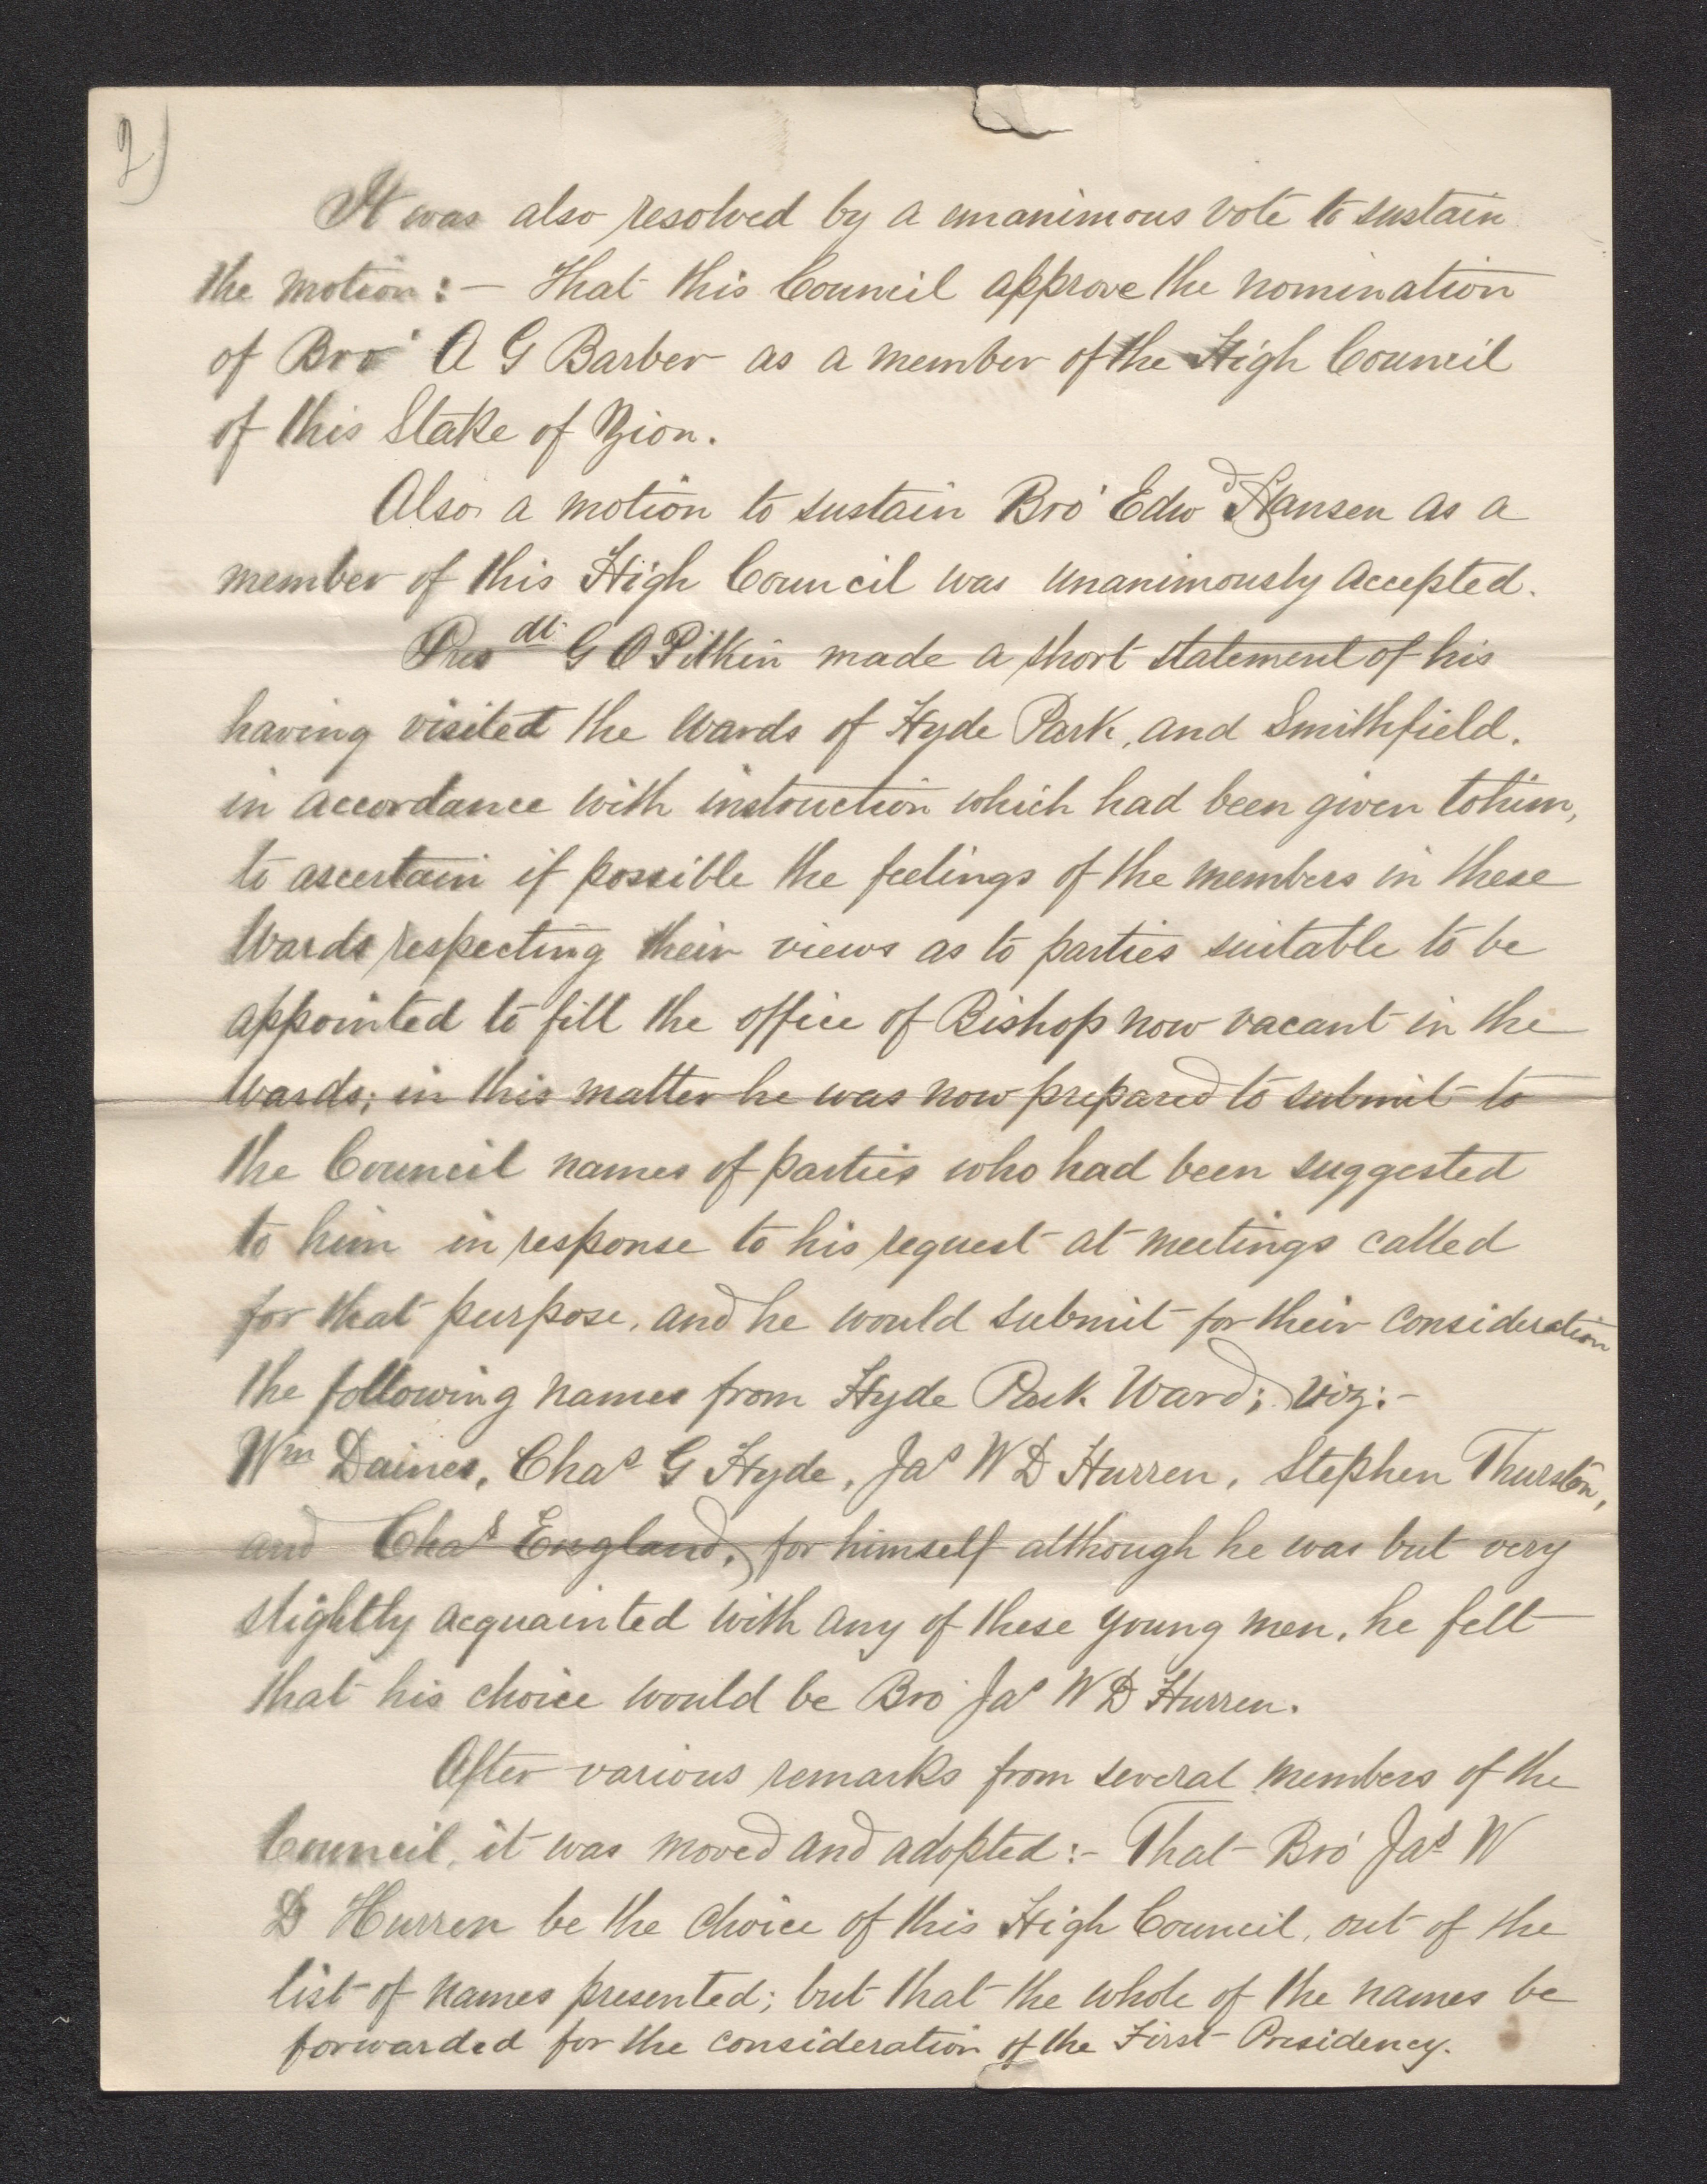 2)
It was also resolved by a unanimous vote to sustain
the motion:— That this Council approve the nomination
of Bro' A G Barber as a member of the High Council
of this Stake of Zion.
Also a motion to sustain Bro' Edwd Hansen as a
member of this High Council was unanimously accepted.
Presdt G O Pitkin made a short statement of his
having visited the Wards of Hyde Park, and Smithfield,
in accordance with instruction which had been given to him,
to ascertain if possible the feelings of the members in these
Wards respecting their views as to parties suitable to be
appointed to fill the office of Bishop now vacant in the
Wards; in this matter he was now prepared to submit to
the Council names of parties who had been suggested
to him in response to his request at meetings called
for that purpose, and he would submit for their consideration
the following names from Hyde Park Ward; viz:-
Wm Daines, Chas G Hyde, Jas W D Hurren, Stephen Thurston,
and Chas England, for himself although he was but very
slightly acquainted with any of these young men, he felt
that his choice would be Bro' Jas W D Hurren.
After various remarks from several members of the
Council, it was moved and adopted:- That Bro' Jas W
D Hurren be the choice of this High Council, out of the
list of names presented; but that the whole of the names be
forwarded for the consideration of the First Presidency.